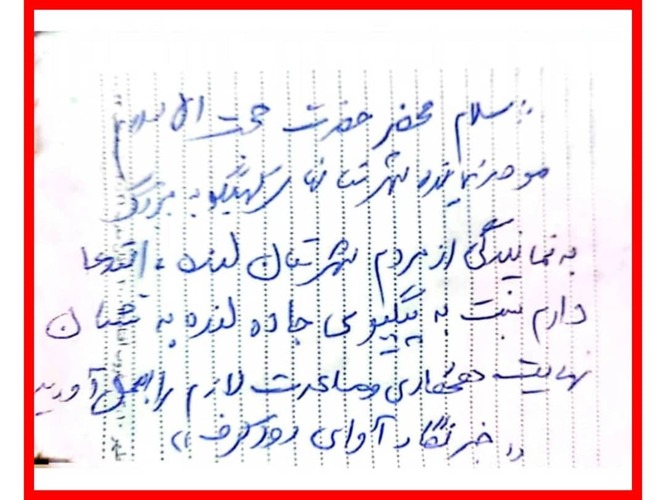 سلام محضر حضرت حجت الاسلام
موحد نماینده شهرستان های کهگیلویه بزرگ
به نمایندگی از مردم شهرستان لنده ، استدعا
دارم نسبت به پیگیری جاده لنده به تشان
نهایت همکاری و مساعدت لازم را بعمل آورید
«خبرنگار آوای»